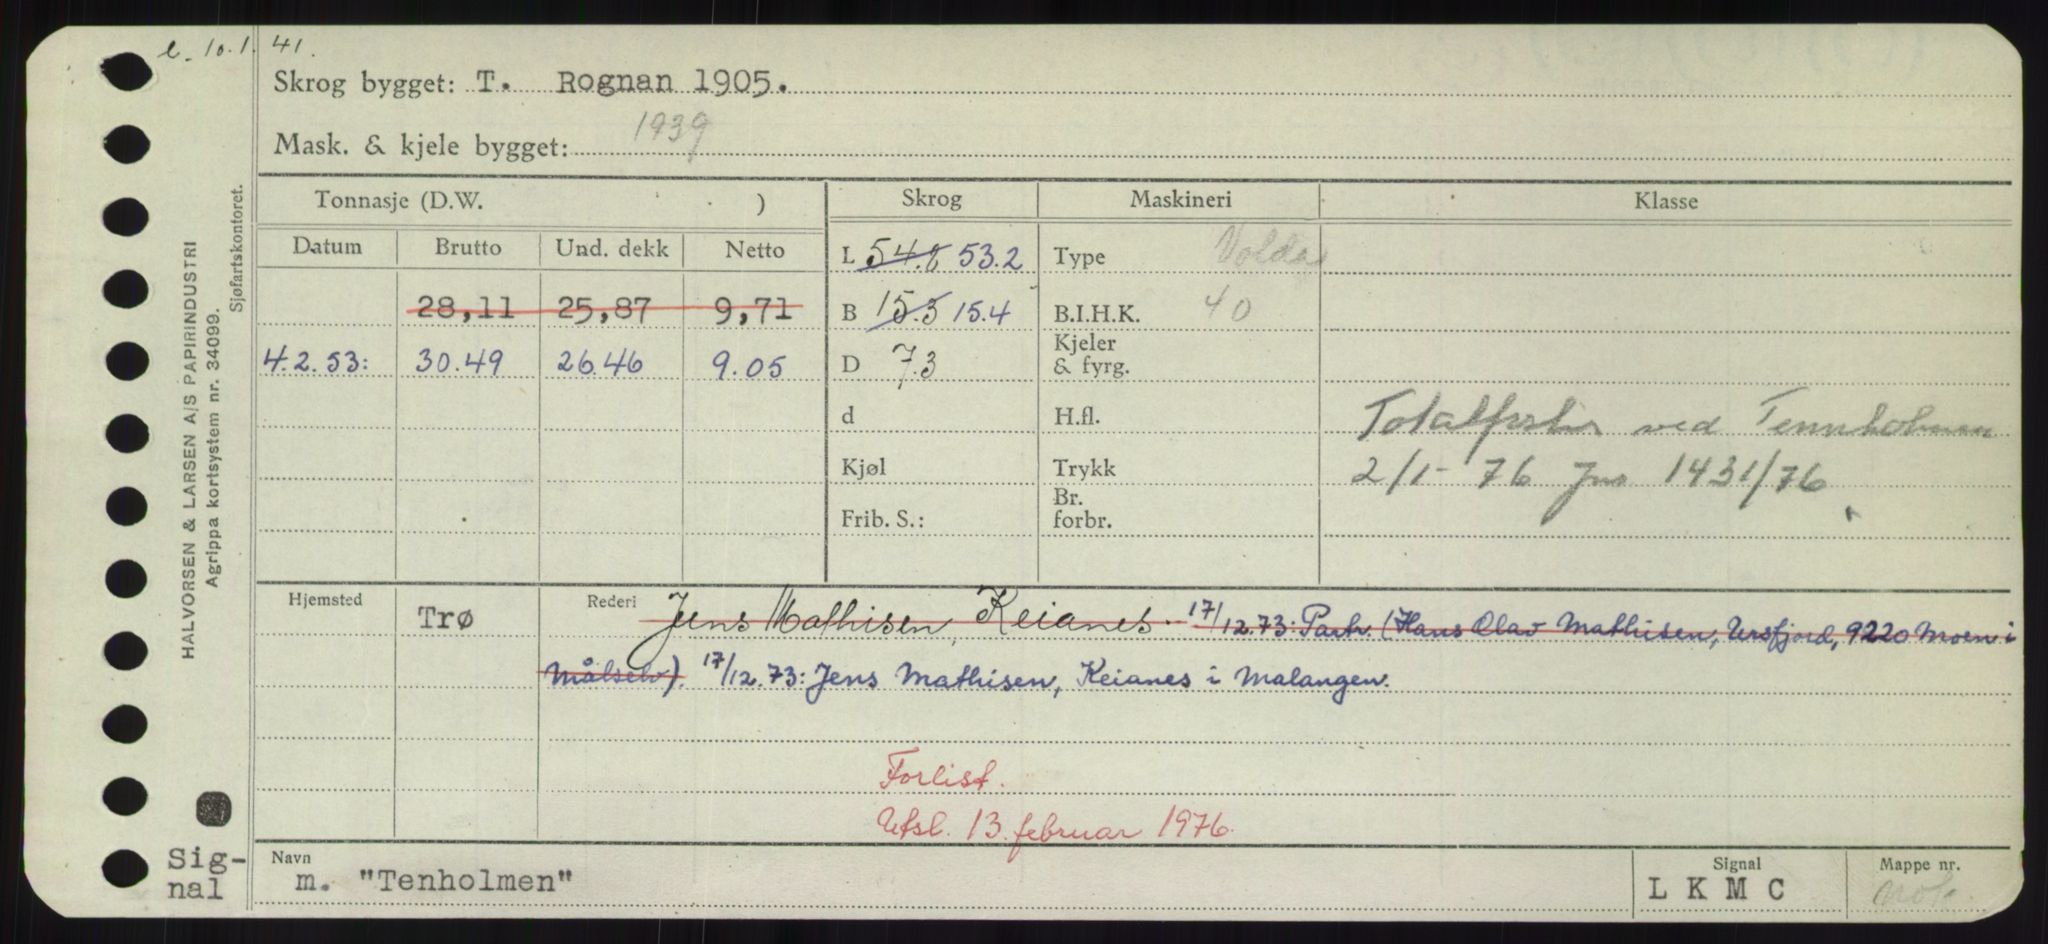 e. 10.1.41.
Skrog bygget: T. Rognan 1905.
Mask. & kjele bygget: 1939
Tonnasje (D.W. )
Skrog
Maskineri
Klasse
Datum Brutto Und. dekk Netto
L 54.8 53.2
Type Volda
28,11 25,87 9,71
B 15.3 15.4
B.I.H.K. 40
4.2.53: 30.49 26.46 9.05
D 7.3
Kjeler
& fyrg.
d
H.fl.
Totalforlis ved Tennholmen
Kjøl
Trykk
2/1-76 Jnr 1431/76
Frib. S.:
Br.
forbr.
Hjemsted Trø
Rederi Jens Mathisen, Keianes. 17/12.73: Partr. (Hans Olav Mathisen, Ursfjord, 9220 Moen i
Målselv). 17/12.73: Jens Mathisen, Keianes i Malangen.
Forlist.
Utsl. 13. februar 1976.
Sig-
nal
Navn
m. "Tenholmen"
Signal
L K M C
Mappe nr.
HALVORSEN & LARSEN A/S PAPIRINDUSTRI
Agrippa kortsystem nr. 34099.
Sjøfartskontoret.